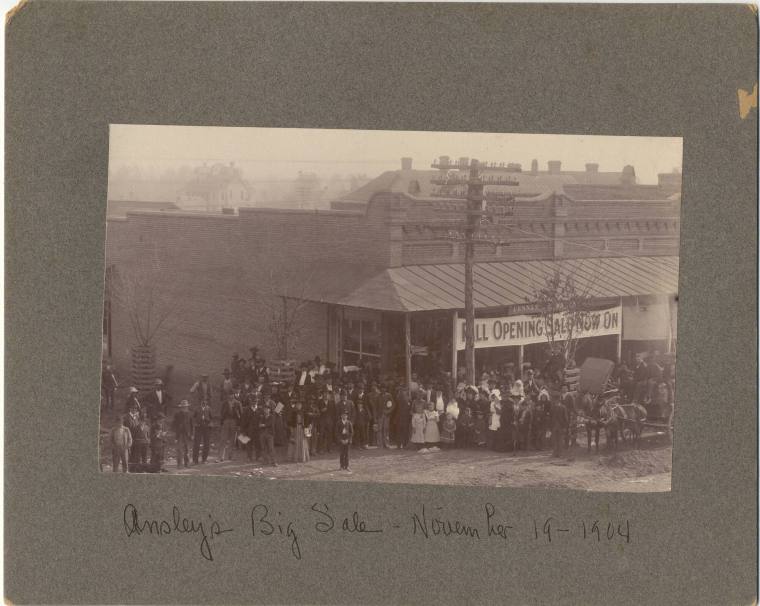 FALL OPENING SALE NOW ON
Ansley's Big Sale - November 19 - 1904